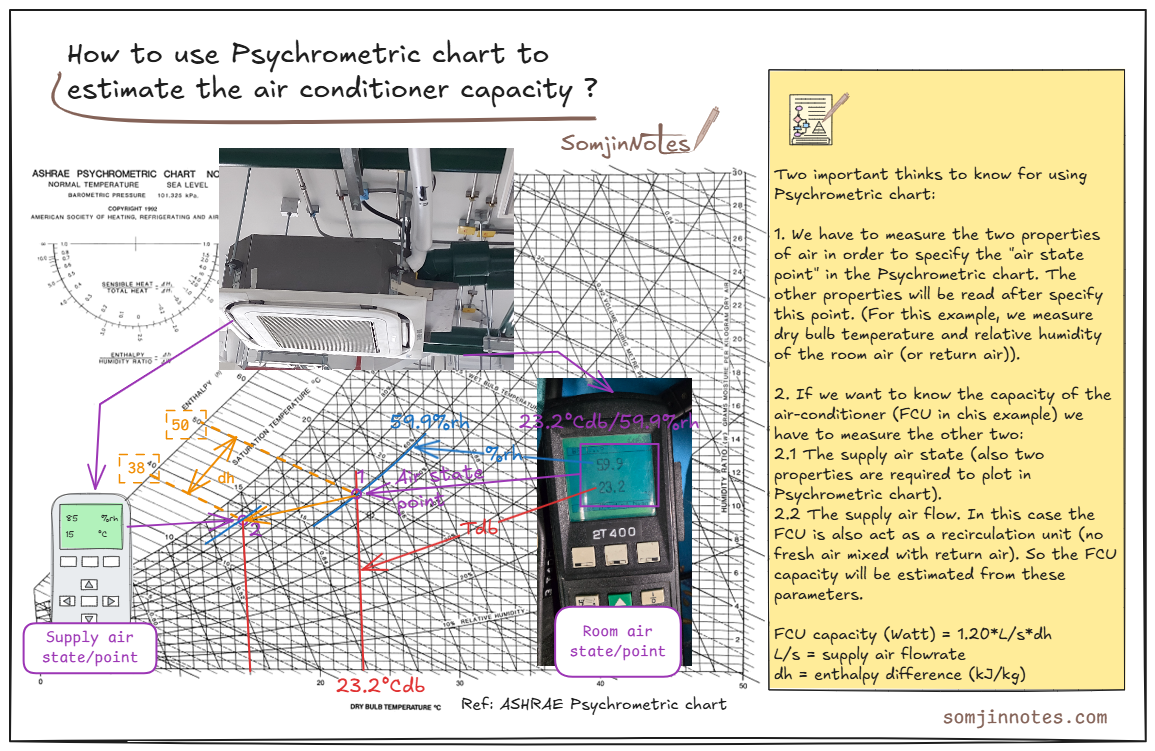 How to use Psychrometric chart to
estimate the air conditioner capacity ?
SomjinNotes
ASHRAE PSYCHROMETRIC CHART NO
NORMAL TEMPERATURE SEA LEVEL
BAROMETRIC PRESSURE 101.325 kPa.
COPYRIGHT 1992
AMERICAN SOCIETY OF HEATING, REFRIGERATING AND AIR
SENSIBLE HEAT
TOTAL HEAT
ENTHALPY
HUMIDITY RATIO
ENTHALPY
SATURATION TEMPERATURE °C
WET BULB TEMPERATURE
HUMIDITY RATIO
GRAMS MOISTURE PER KILOGRAM DRY AIR
10% RELATIVE HUMIDITY
50
38
dh
59.9%rh
%rh
1
2
Air state
point
Tdb
23.2°Cdb/59.9%rh
59.9
23.2
2T400
85 %rh
15 °C
Supply air
state/point
Room air
state/point
23.2°Cdb
0
20
40
50
DRY BULB TEMPERATURE °C
Ref: ASHRAE Psychrometric chart
Two important thinks to know for using
Psychrometric chart:
1. We have to measure the two properties
of air in order to specify the "air state
point" in the Psychrometric chart. The
other properties will be read after specify
this point. (For this example, we measure
dry bulb temperature and relative humidity
of the room air (or return air)).
2. If we want to know the capacity of the
air-conditioner (FCU in chis example) we
have to measure the other two:
2.1 The supply air state (also two
properties are required to plot in
Psychrometric chart).
2.2 The supply air flow. In this case the
FCU is also act as a recirculation unit (no
fresh air mixed with return air). So the FCU
capacity will be estimated from these
parameters.
FCU capacity (Watt) = 1.20*L/s*dh
L/s = supply air flowrate
dh = enthalpy difference (kJ/kg)
somjinnotes.com